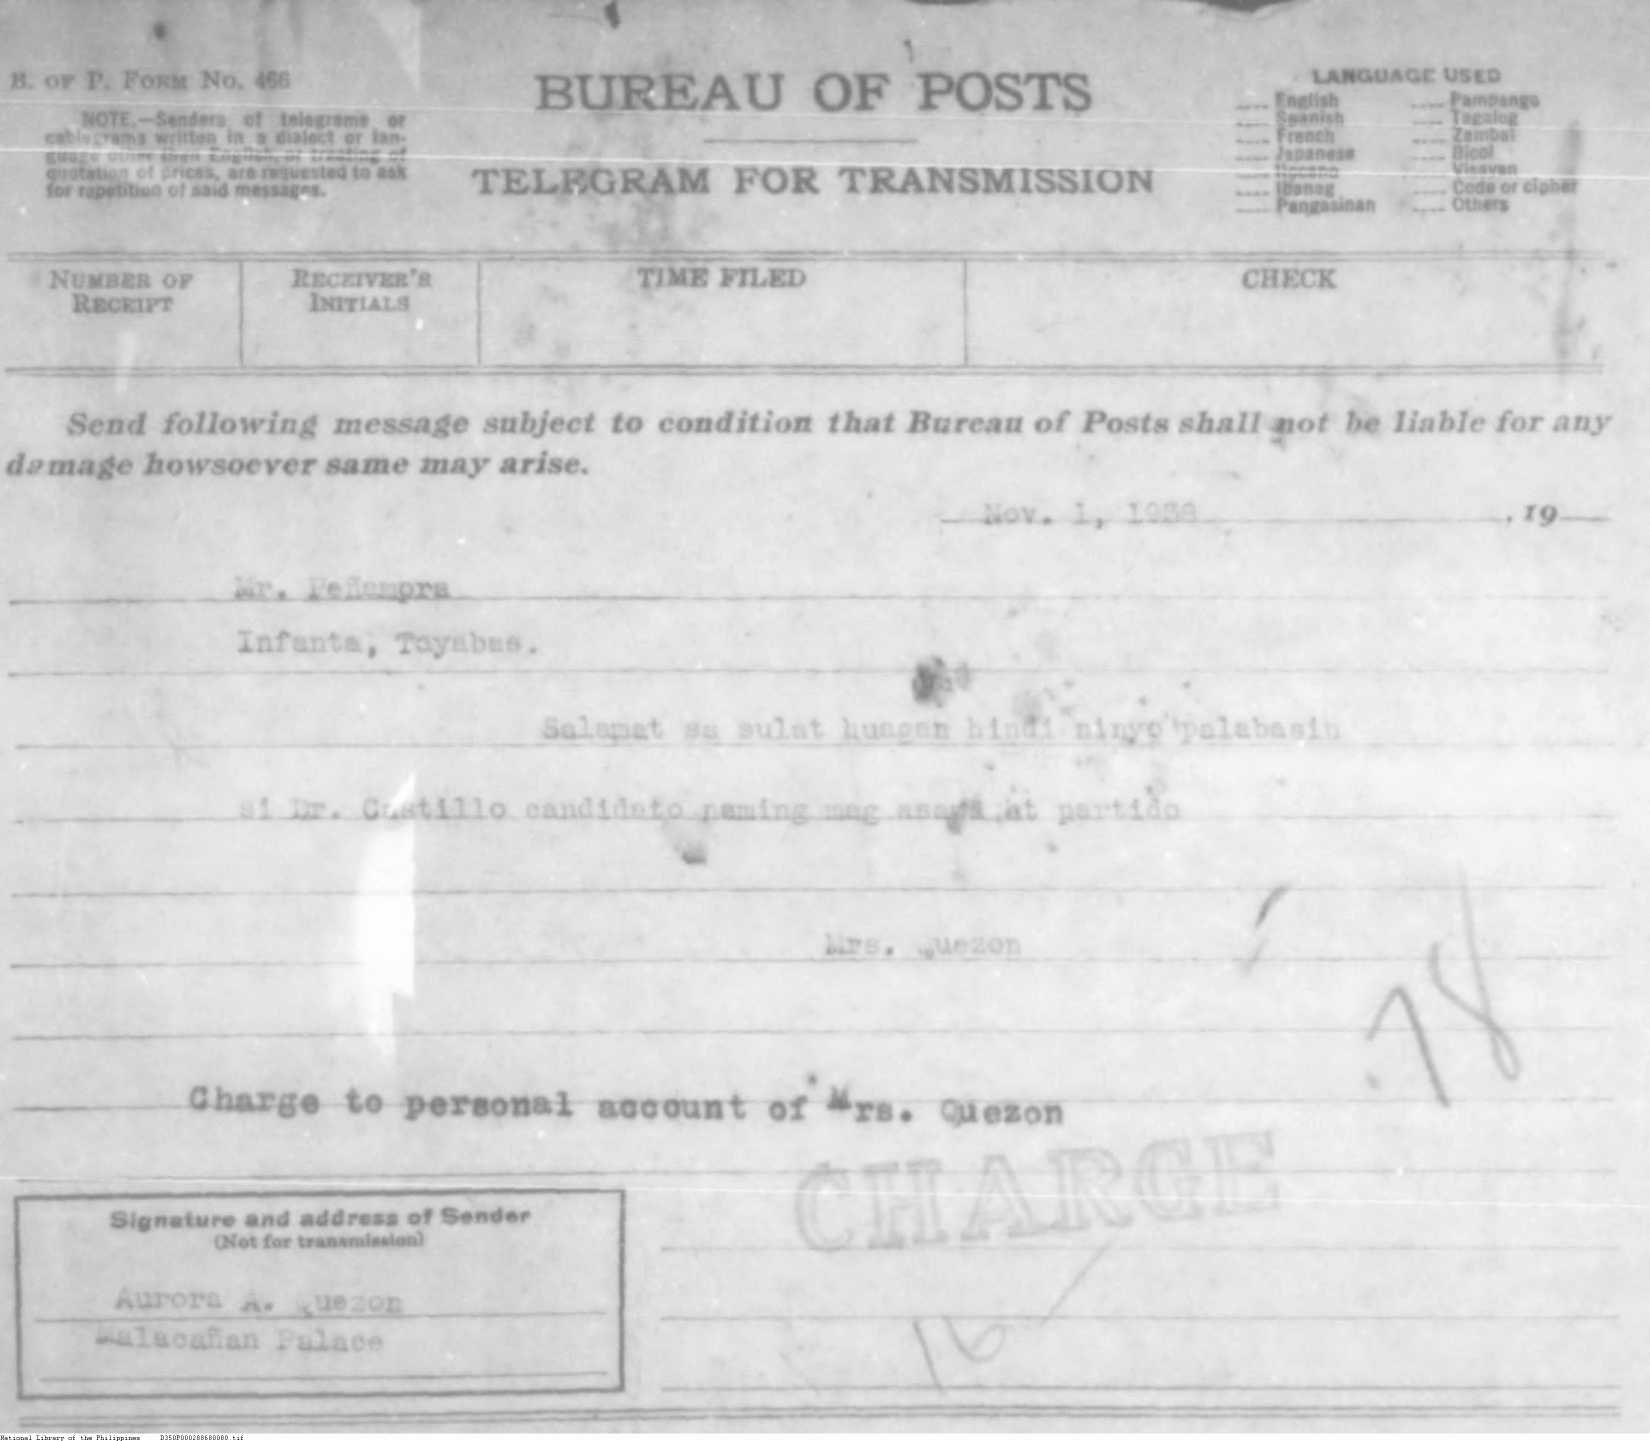 B. OF P. FORM NO. 466
NOTE.—Senders of telegrams or
cablegrams written in a dialect or lan-
guage other than English, or treating of
quotation of prices, are requested to ask
for repetition of said messages.
BUREAU OF POSTS
TELEGRAM FOR TRANSMISSION
LANGUAGE USED
.... English .... Pampango
.... Spanish .... Tagalog
.... French .... Zambal
.... Japanese .... Bicol
.... Ilocano .... Visayan
.... Ibanag .... Code or cipher
.... Pangasinan .... Others
NUMBER OF RECEIPT
RECEIVER'S INITIALS
TIME FILED
CHECK
Send following message subject to condition that Bureau of Posts shall not be liable for any
damage howsoever same may arise.
Nov. 1, 1938 , 19
Mr.
Infanta, Tayabas.
Salamat sa sulat huagan hindi ninyo palabasin
si Dr. Castillo candidato naming mag asawa at partido
Mrs. Quezon
.78
Charge to personal account of Mrs. Quezon
CHARGE
Signature and address of Sender
(Not for transmission)
Aurora A. Quezon
Malacañan Palace
16
National Library of the Philippines D350P000288680080.tif